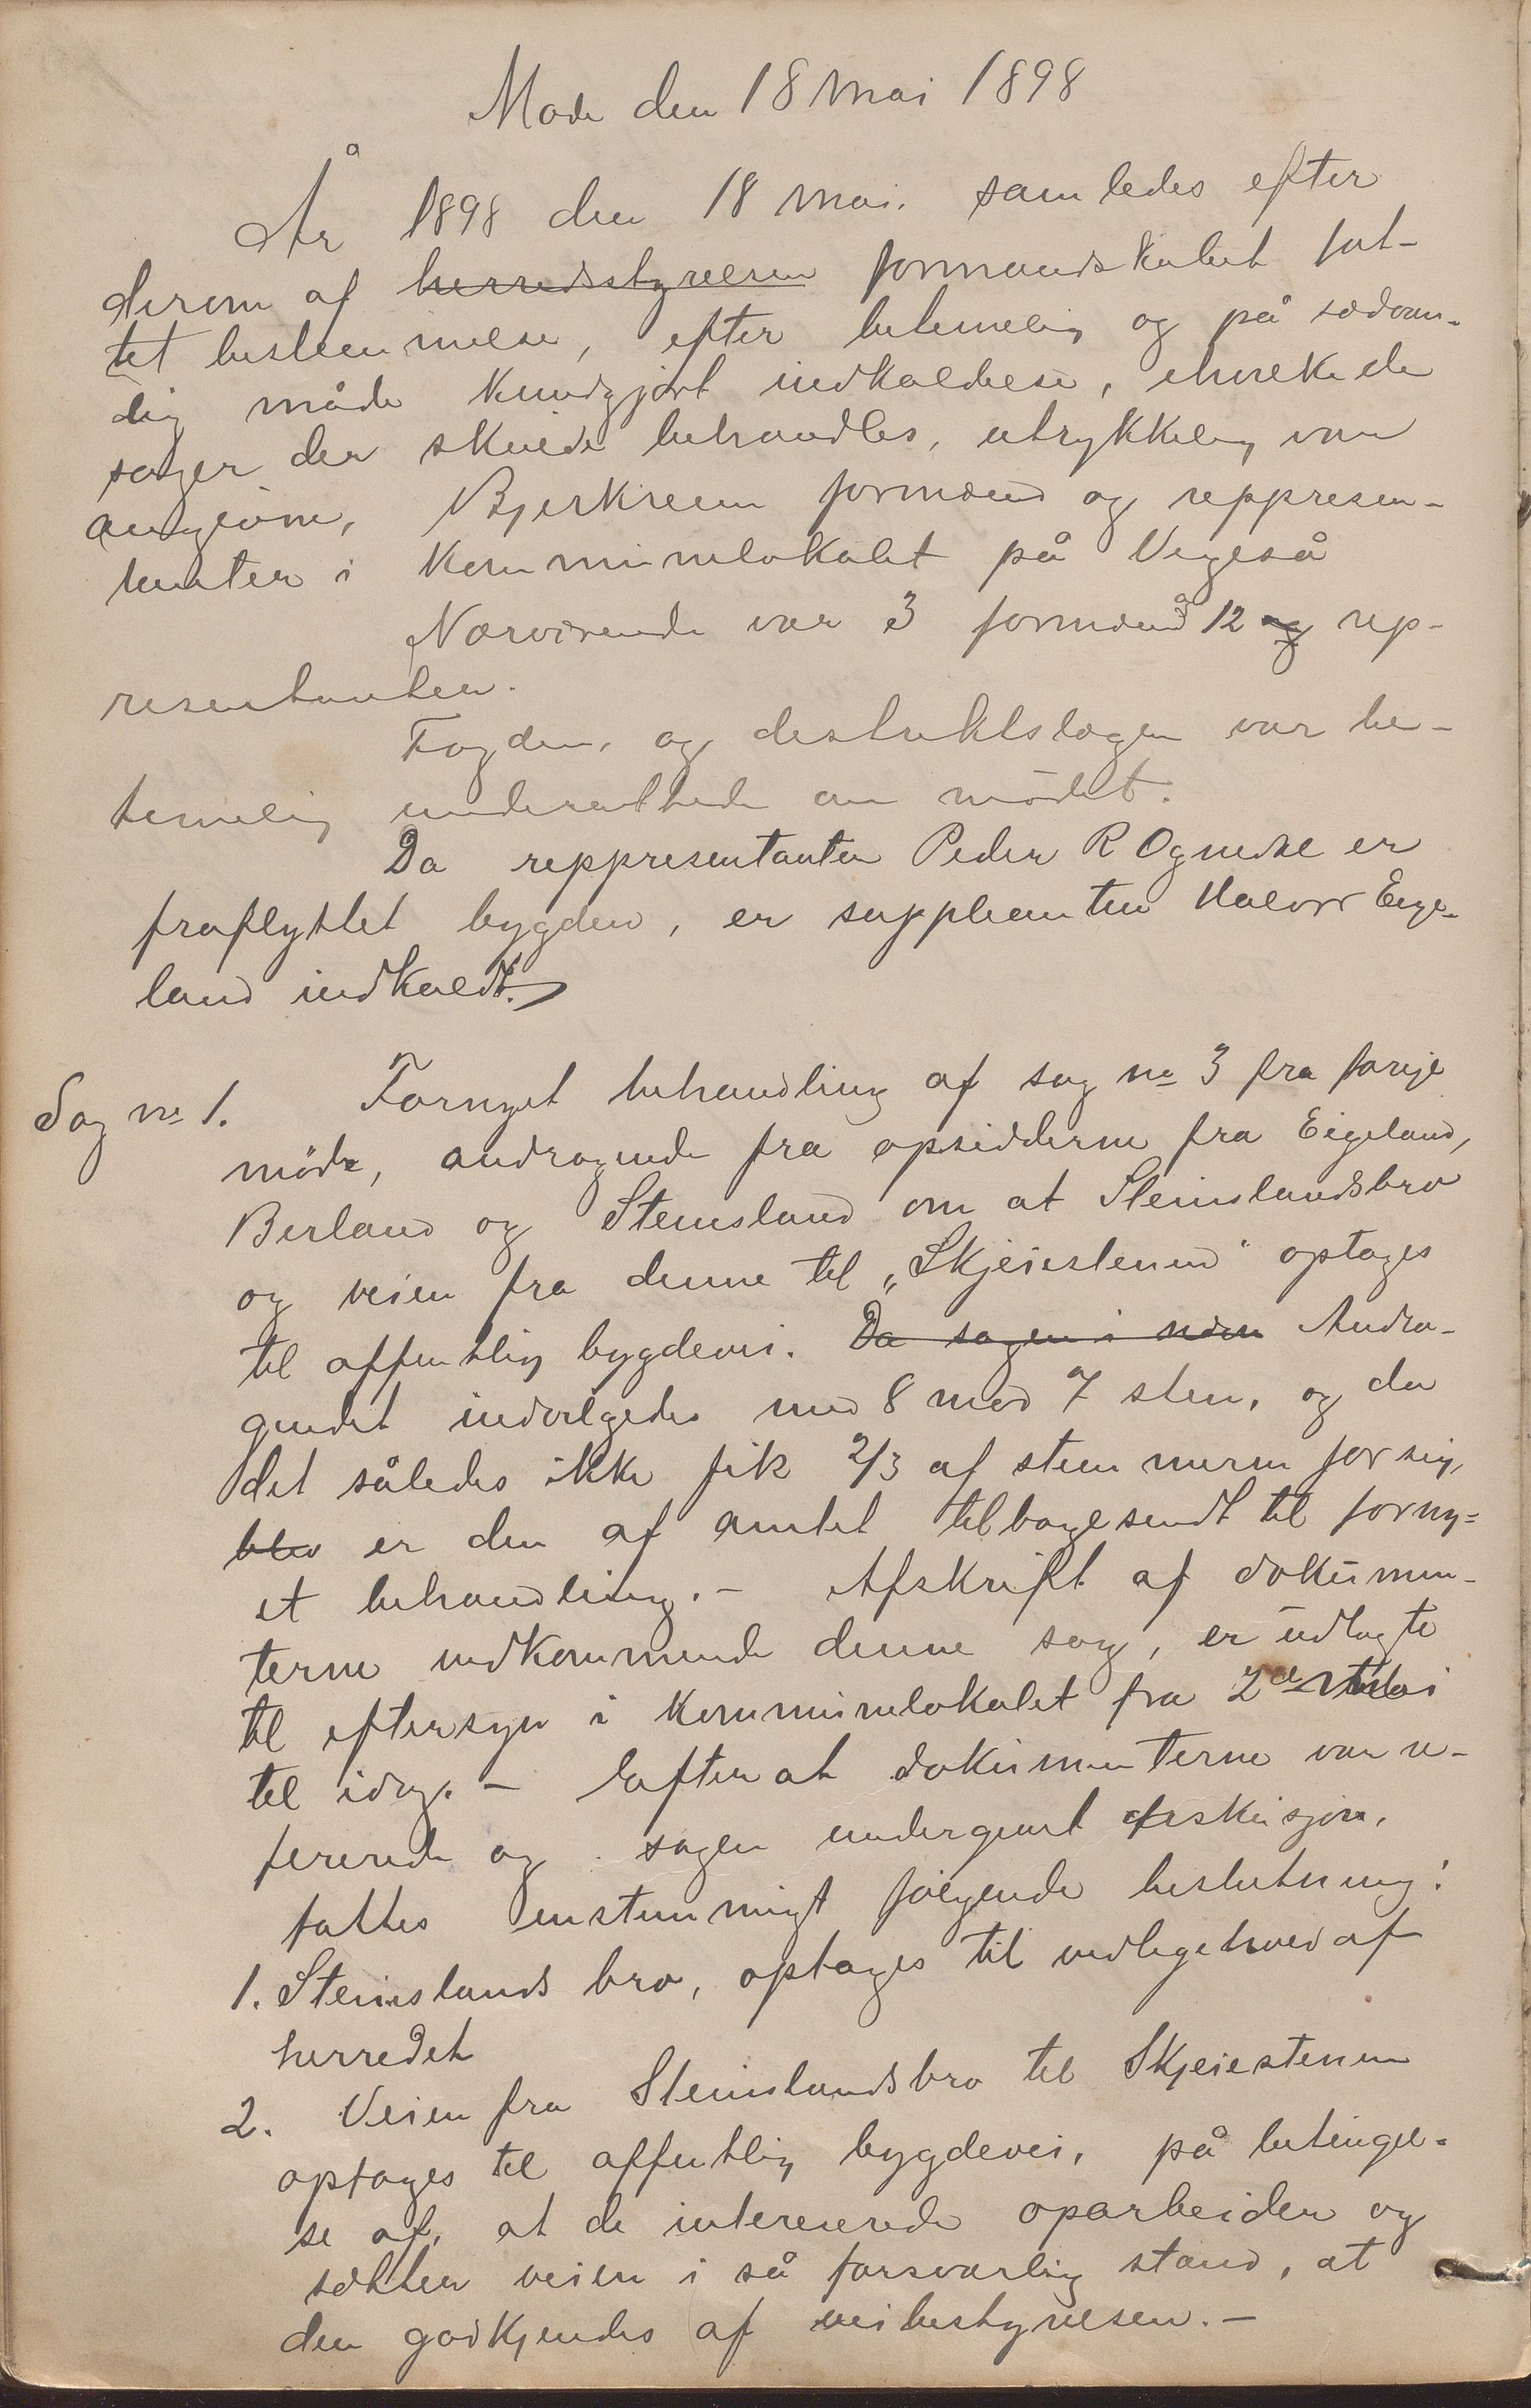 Møde den 18 mai 1898
År 1898 den 18 mai. samledes efter
derom af herredsstyrelsen formandskabet fat-
tet bestemmelse, efter betimelig og på sædvan-
lig måde kundgjort indkaldelse, ihvilke de
sager der skulde behandles, utrykkelig var
angivne, Bjerkreim formænd og reppresen-
tanter i kommunelokalet på Vigeså
Nærværende var 3 formænd og 12 og rep-
resentanter.
Fogden, og destriktslægen var be-
timelig underrettede om mødet.
Da reppresentanten Peder R Ognedal er
fraflyttet bygden, er supleanten Halvor Eige-
land indkaldt.
Sag no 1. Fornyet behandling af sag no 3 fra forrige
møde, andragende fra opsidderne fra Eigeland,
Berland og Steinsland om at Steinslandsbro
og veien fra denne til „Skjeiestenen" optages
til offentlig bygdevei. Da sagen i Andra-
gendet indvilgedes med 8 mod 7 stem. og da
det således ikke fik 2/3 af stemmerne for sig,
blev er den af amtet tilbagesendt til forny-
et behandling. - Afskrift af dokumen-
terne vedkommende denne sag, er udlagte
til eftersyn i kommunelokalet fra 2den mai
til idag. - Efter at dokumenterne var re-
fererede og sagen undergaaet diskusjon,
fattes enstemmigt følgende beslutning:
1. Steinslands bro, optages til vedligehold af
herredet
2. Veien fra Steinslandsbro til Skjeiestenen
optages til offentlig bygdevei, på betingel-
se af, at de intereserede oparbeider og
sætter veien i så forsvarlig stand, at
den godkjendes af veibestyrelsen. -